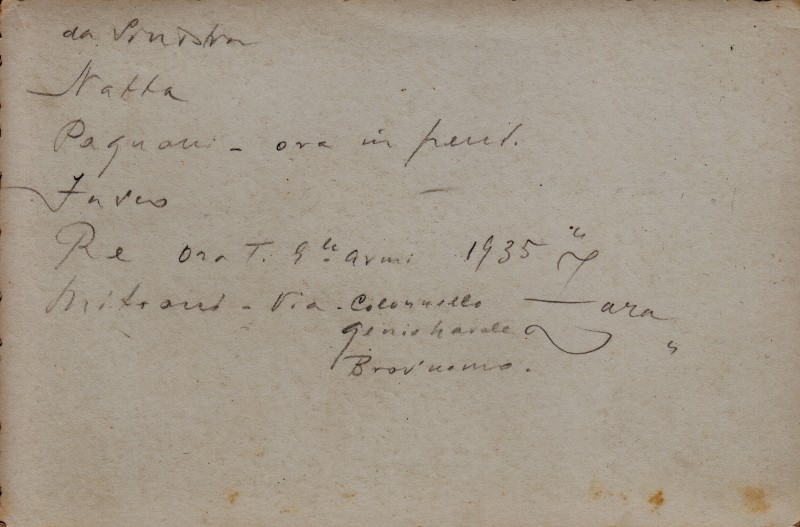 da Sinistra
Natta
Pagnoni - ora in pens.
Fusco
Re ora T. Gle Armi 1935 "Zara"
Mitrani - Via - Colonnello
genio navale
Brav'uomo.